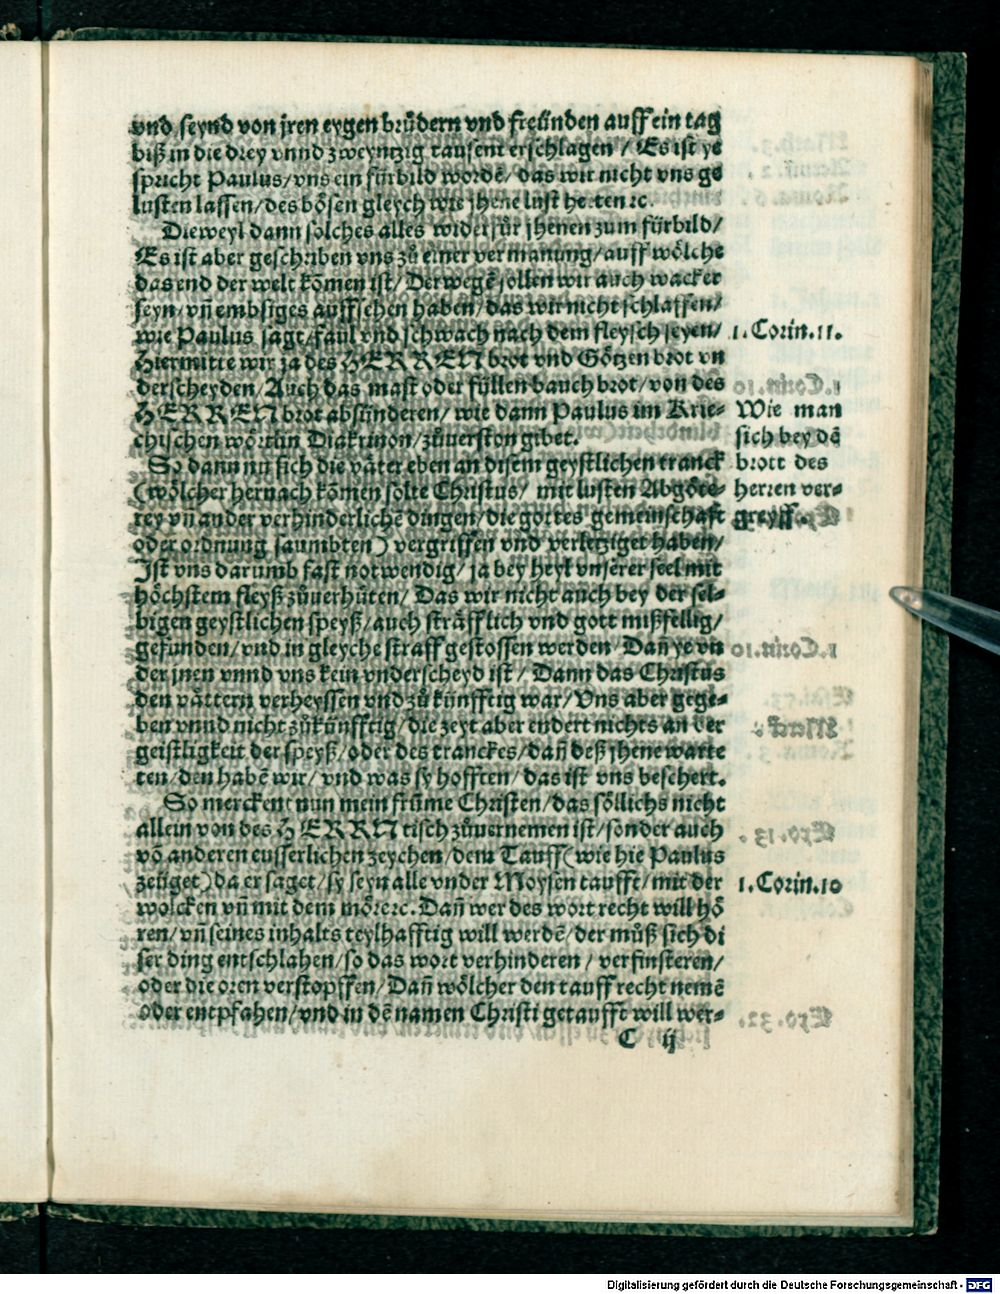 vnd seynd von jren eygen brůdern vnd freünden auff ein tag
biß in die drey vnnd zweyntzig tausent erschlagen / Es ist ye
spricht Paulus/vns ein fürbild wordẽ/ das wir nicht vns ge
lusten lassen/des bösen gleych wie jhene lust hetten ꝛc.
Dieweyl dann solches alles widerfůr jhenen zum fürbild/
Es ist aber geschriben vns zů einer vermanung/auff wölche
das end der welt kõmen ist/ Der wegẽ sollen wir auch wacker
seyn/vñ embsiges auffsehen haben/das wir nicht schlaffen/
wie Paulus sagt/faul vnd schwach nach dem fleysch seyen/
1. Corin. 11.
Hiermitte wir ja des HERREN brot vnd Götzen brot vn
derscheyden/Auch das mast oder füllen bauch brot/von des
HERREN brot absünderen/ wie dann Paulus im Krie-
chischen wörtlin Diakrinon/zůuerston gibet.
Wie man
sich bey dẽ
brott des
herren ver-
greyff.
So dann nu sich die våter eben an disem geystlichen tranck
(wölcher hernach kõmen solte Christus/ mit lusten Abgöte-
rey vñ ander verhinderlichẽ dingen/die gottes gemeinschaft
oder ordnung saumbten) vergriffen vnd verletziget haben/
Ist vns darumb fast notwendig/ ja bey heyl vnserer seel mit
höchstem fleyß zůuerhüten/ Das wir nicht auch bey der sel-
bigen geystlichen speyß/auch sträfflich vnd gott mißfellig/
gefunden/vnd in gleyche straff gestossen werden/ Dañ ye vn
der jnen vnnd vns kein vnderscheyd ist/ Dann das Christus
den vättern verheyssen vnd zů künfftig war/ Vns aber gege-
ben vnnd nicht zůkünfftig/die zeyt aber endert nichts an der
geistligkeit der speyß/oder des tranckes/dañ deß jhene warte
ten/den habẽ wir/ vnd was sy hofften/das ist vns beschert.
So merckent nun mein frũme Christen/das söllichs nicht
allein von des HERRN tisch zůuernemen ist/sonder auch
võ anderen eusserlichen zeychen/dem Tauff(wie hie Paulus
zeüget)da er saget/sy seyn alle vnder Moysen taufft/mit der
1. Corin. 10
wolcken vñ mit dem möreꝛc. Dañ wer des wort recht will hö
ren/vñ seines inhalts teylhafftig will werdẽ/der můß sich di
ser ding entschlahen/so das wort verhinderen / verfinsteren/
oder die oren verstopffen/Dañ wölcher den tauff recht nemẽ
oder entpfahen/vnd in dẽ namen Christi getaufft will wer-
C ij
Digitalisierung gefördert durch die Deutsche Forschungsgemeinschaft - DFG